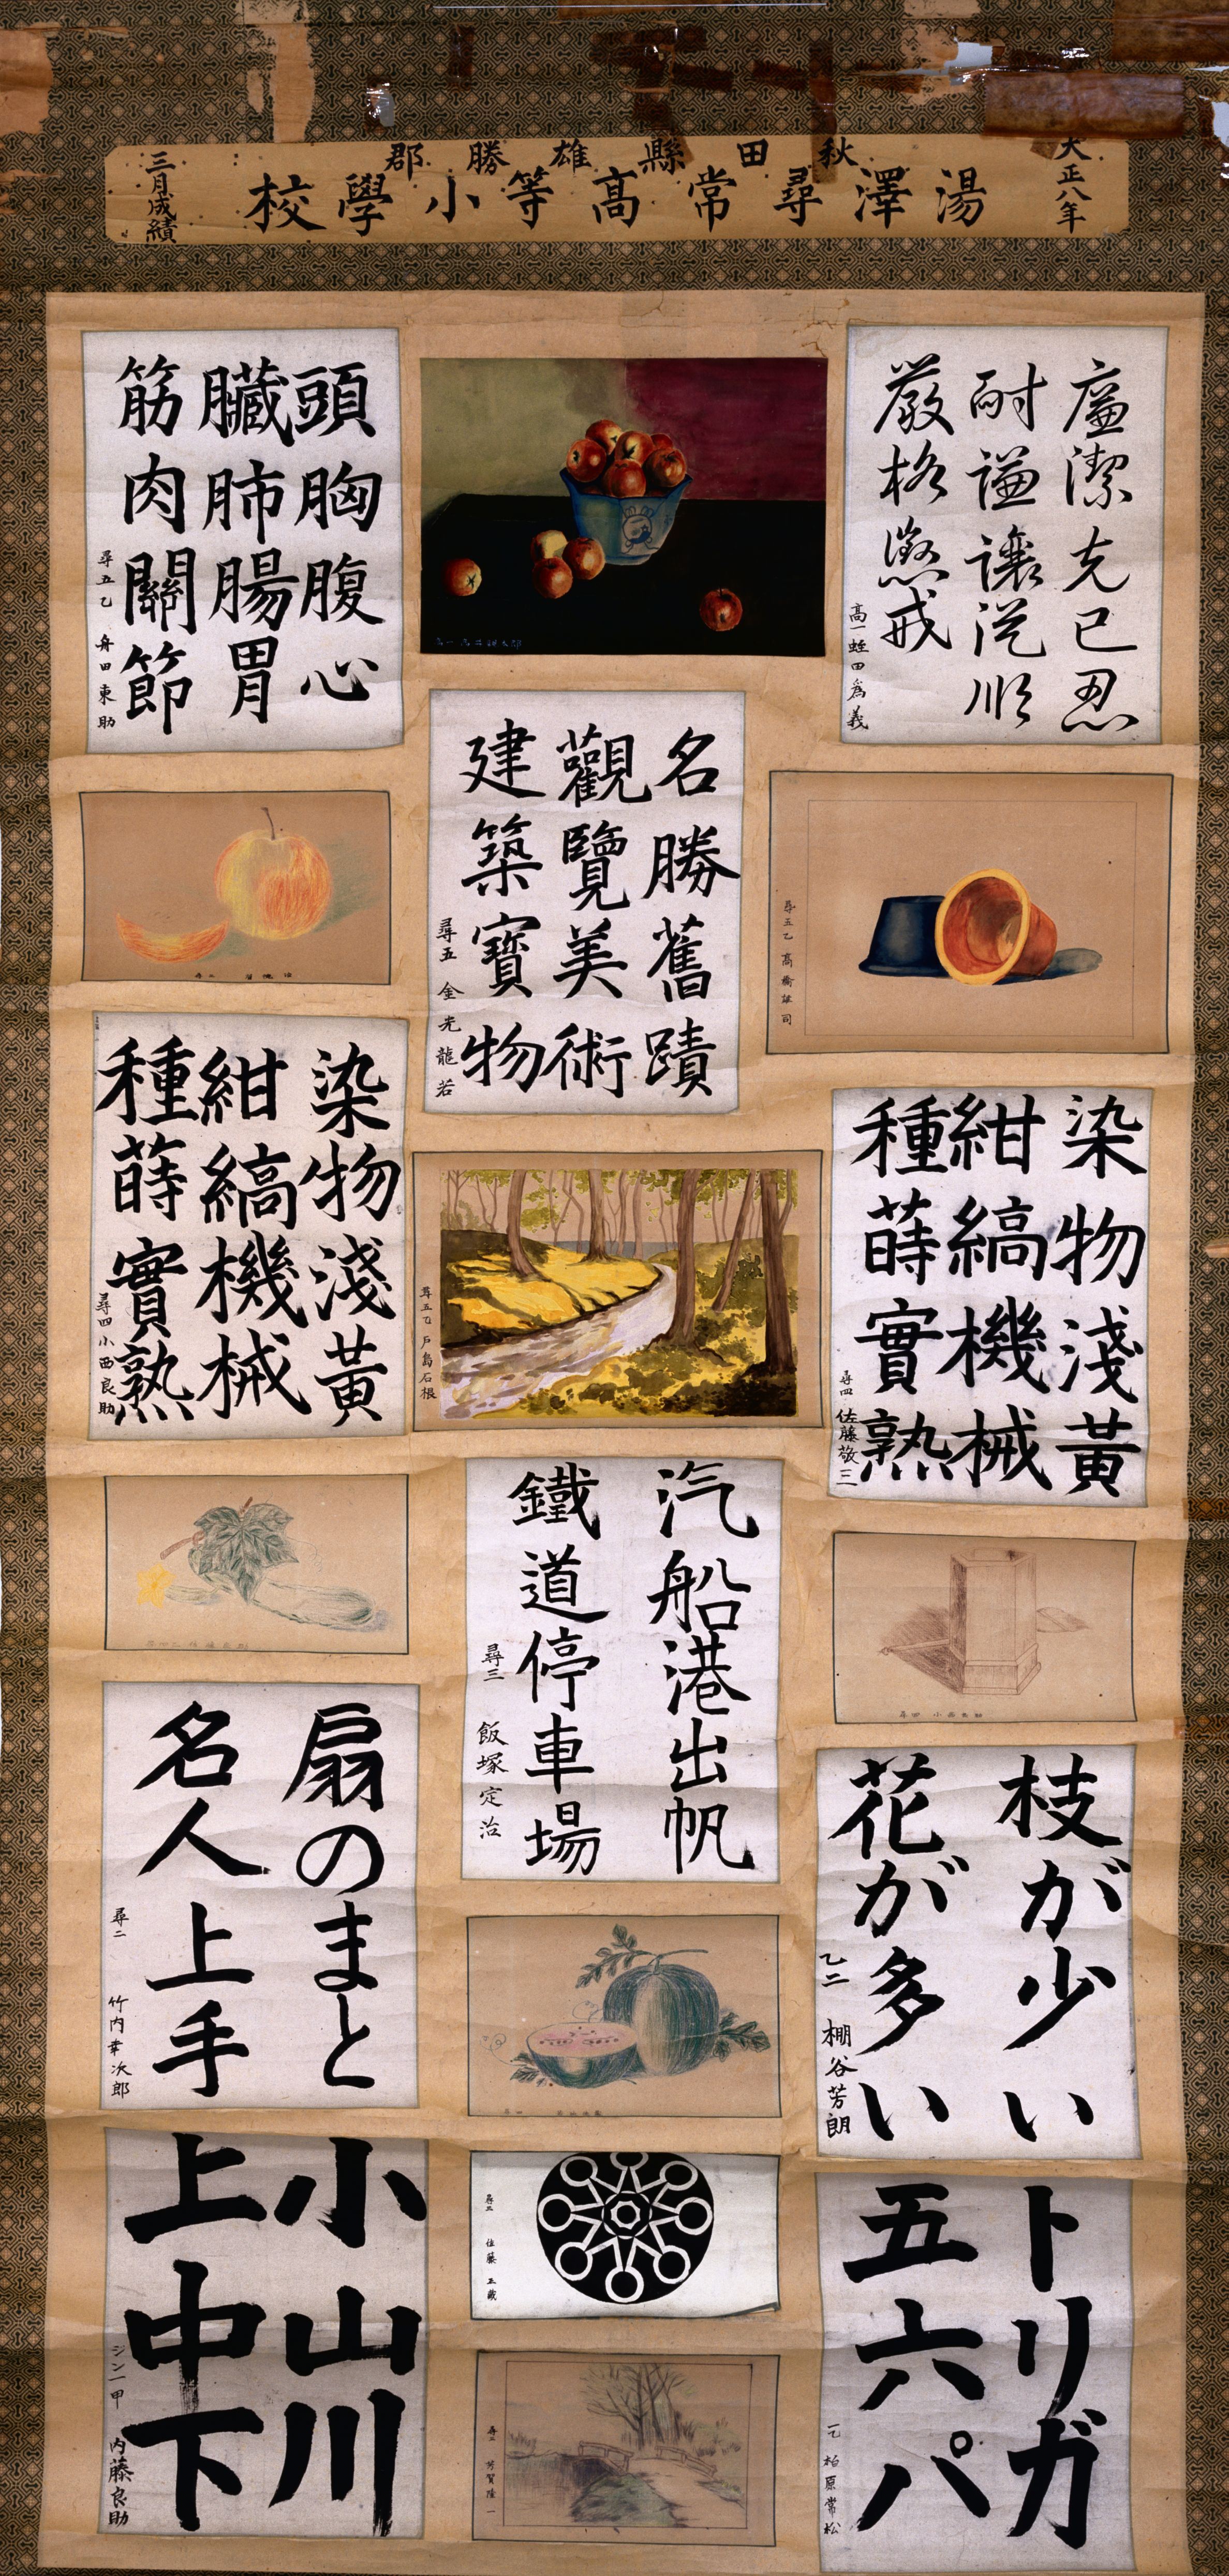 大正八年
秋田縣雄勝郡
湯澤尋常高等小學校
三月成績
廉潔克己忍
耐謙讓從順
嚴格懲戒
高一 蛭田爲義
頭胸腹心
臓肺腸胃
筋肉關節
尋五乙 舟田東助
名勝舊蹟
觀覽美術
建築寶物
尋五 金光龍若
尋五乙 高橋雄司
染物淺黃
紺縞機械
種蒔實熟
尋四 小西良助
染物淺黃
紺縞機械
種蒔實熟
尋四 佐藤敬三
尋五乙 戸島石根
汽船港出帆
鐵道停車場
尋三 飯塚定治
扇のまと
名人上手
尋二 竹内幸次郎
枝が少い
花が多い
乙二 棚谷芳朗
小山川
上中下
ジン一甲 内藤良助
尋三 佐藤正藏
トリガ
五六パ
一乙 柏原常松
尋三 芳賀隆一